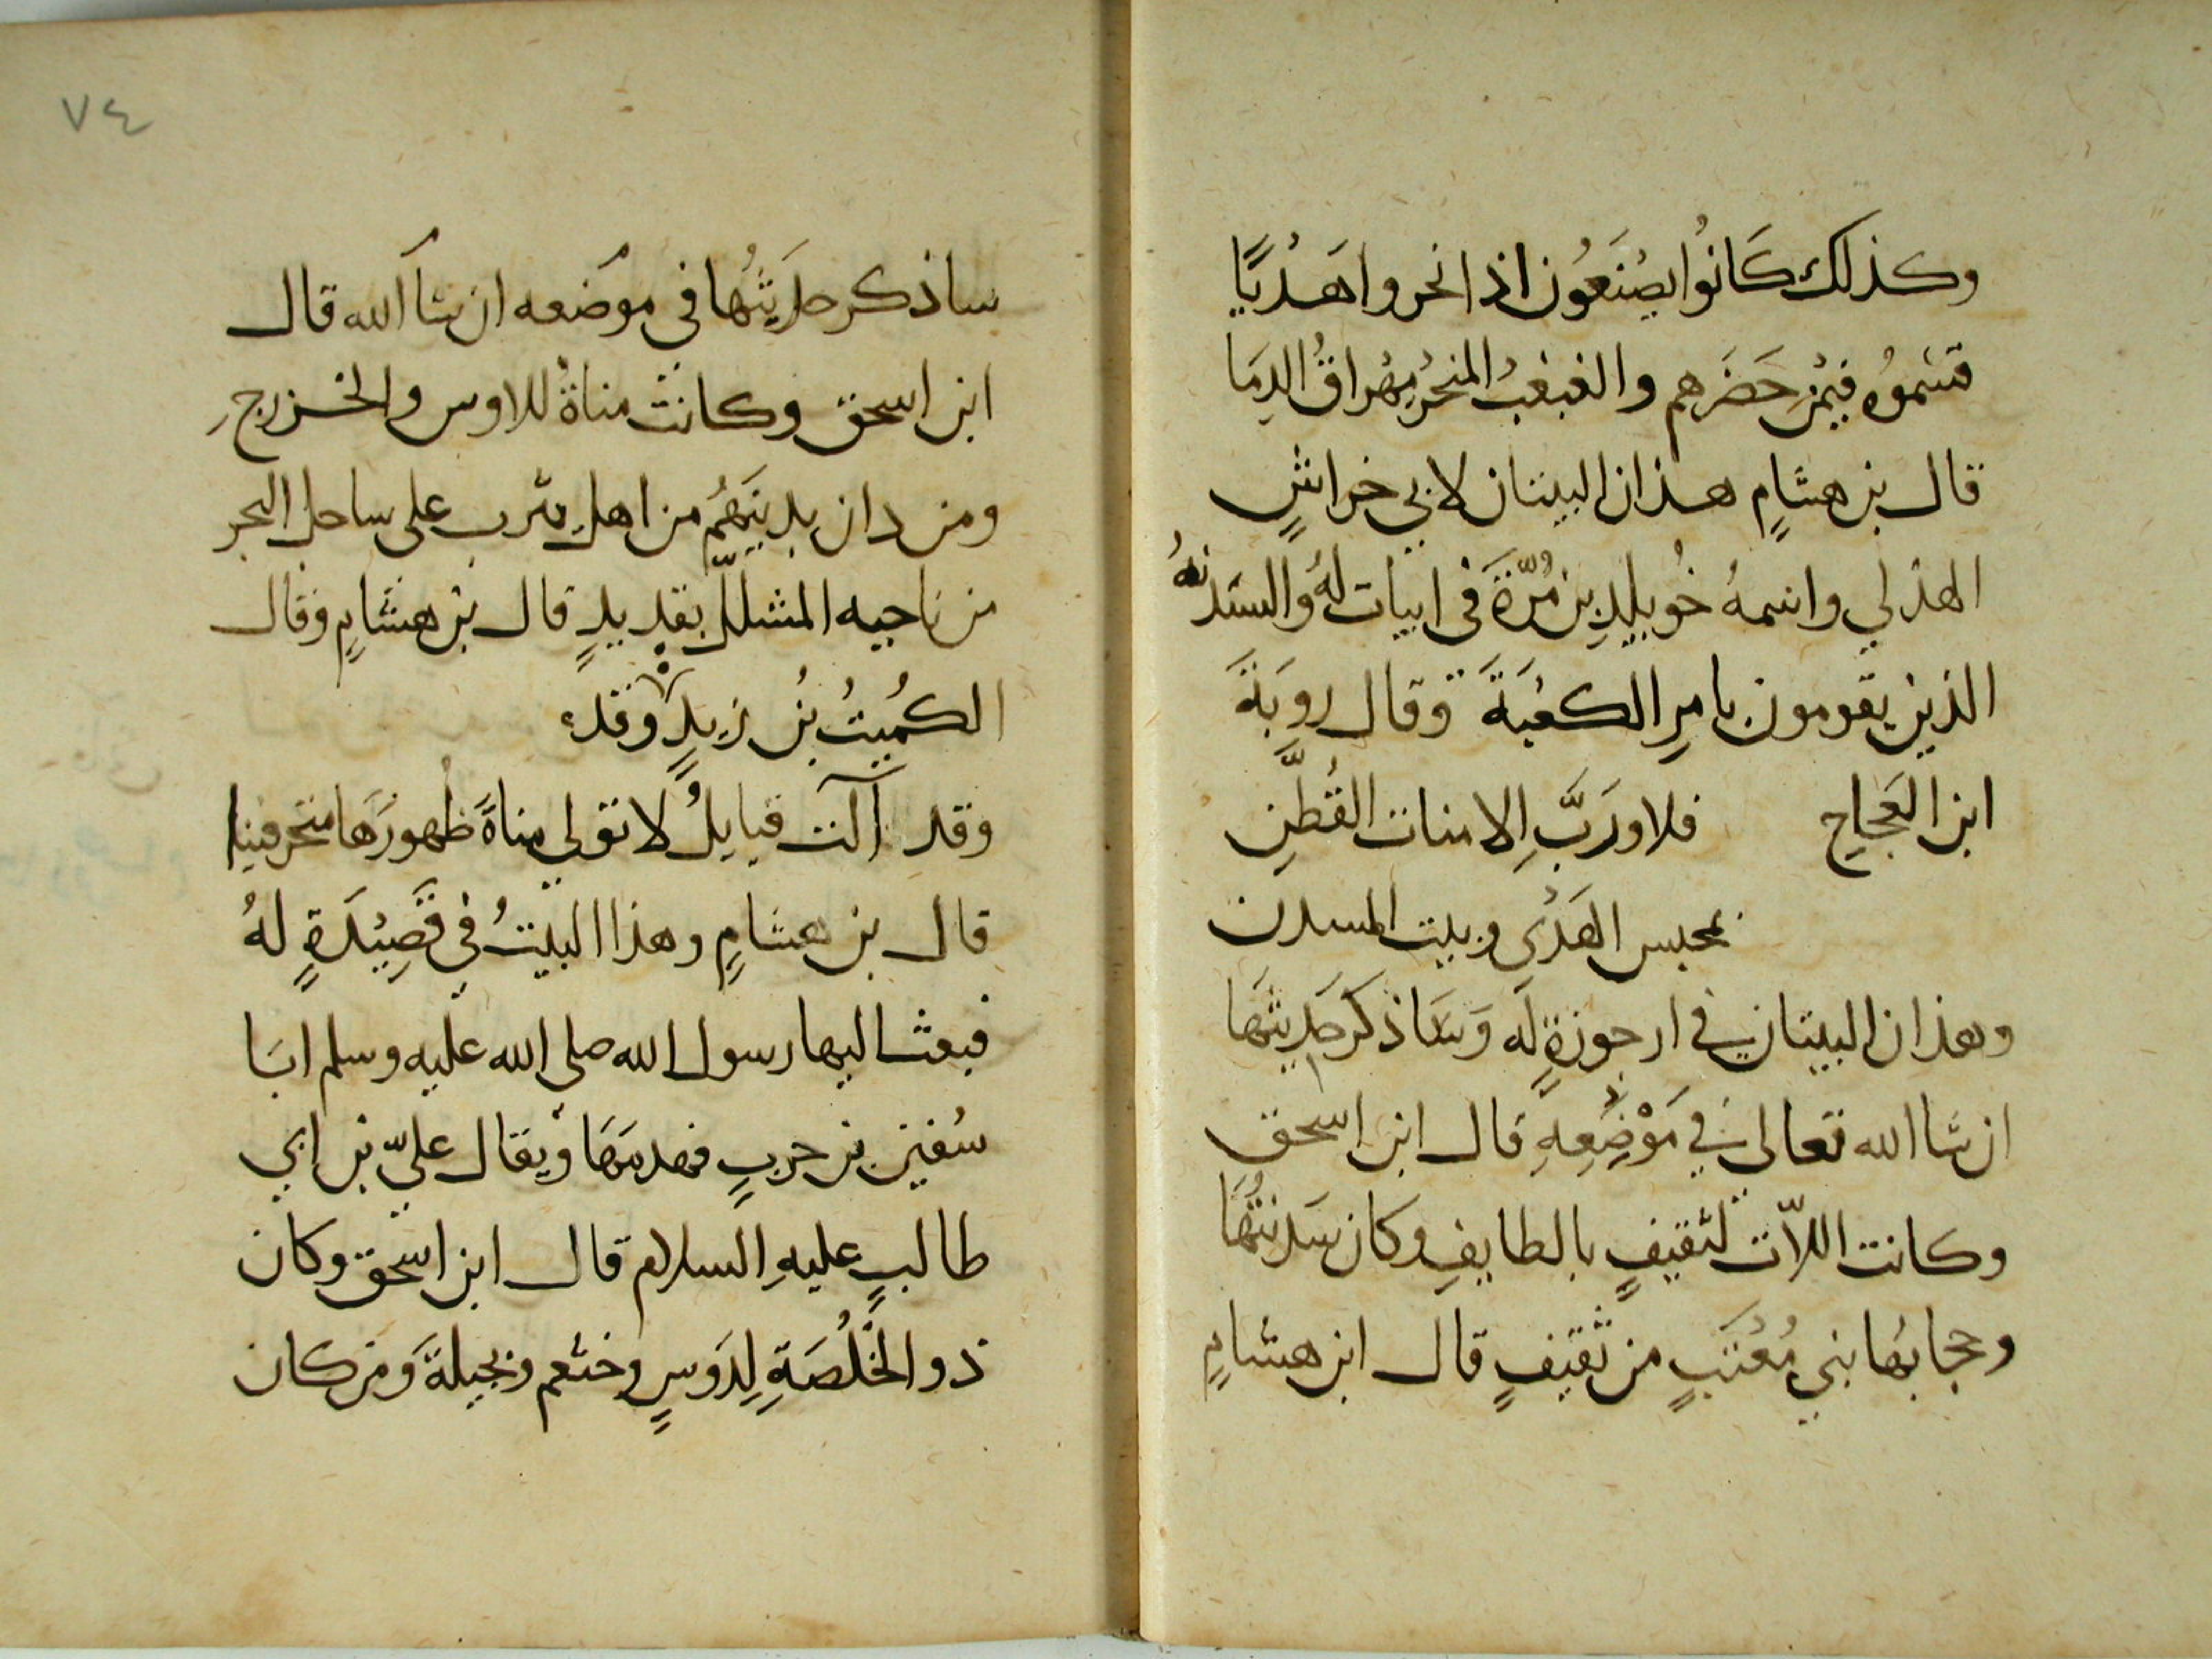 وكذلك كَانُوا يصْنَعُون اذا نحروا هَدْيًا
قسّموُه فيمْن حَضَرهم والغبغبُ المنحرُ مِهْراقُ الدِمَا
قال بن هشامٍ هذان البيتان لابي خراشٍ
الهذلي واسمهُ خُويلدِ بن مُرّةَ في ابيات لهُ والسّدنهُ
الذين يقومون بامرِ الكعْبَةَ وقال روبَةَ
ابن العَجاجِ فلا ورَبَّ الامنات القُطَّنِ
بمحبس الهَدْي وبيت المسدن
وهذان البيتان في ارجوزةٍ لَه وَسَاذكرَ حدِيثهَا
ان شا الله تعالى في مَوْضِعِهِ قال ابن اسحق
وكانت اللاّت لثقيفٍ بالطايفِ وكان سَدنتُهَا
وحجابُها بني مُعْتَبٍ من ثقيفٍ قال ابن هشامٍ
٧٤
ساذكر حدَيثُها في موَضعه ان شآ الله قال
ابن اسحق وكانت مناةُ للاوس والخزرجِ
ومن دان بدينَهُم من اهلِ يثرب على ساحل البحر
من ناحيه المشللّ بقدَيدٍ قال بن هشامٍ وقال
الكُميتُ بنُ زيدٍ وقد
وقد آلت قبايلُ لا تولي مناةَ ظُهورَهَا منحرفينا
قال بن هشامٍ وهذا البيتُ في قَصِيْدَةٍ لهُ
فبعث اليها رسول الله صلى الله عليه وسلم ابَا
سُفين بن حربٍ فهدمَهَا وْيقال عليّ بن ابي
طالبٍ عليهِ السلام قال ابن اسحق وكان
ذو الخَلُصَةِ لِدَوسٍ وخثعم وبجيلةَ وَمن كان